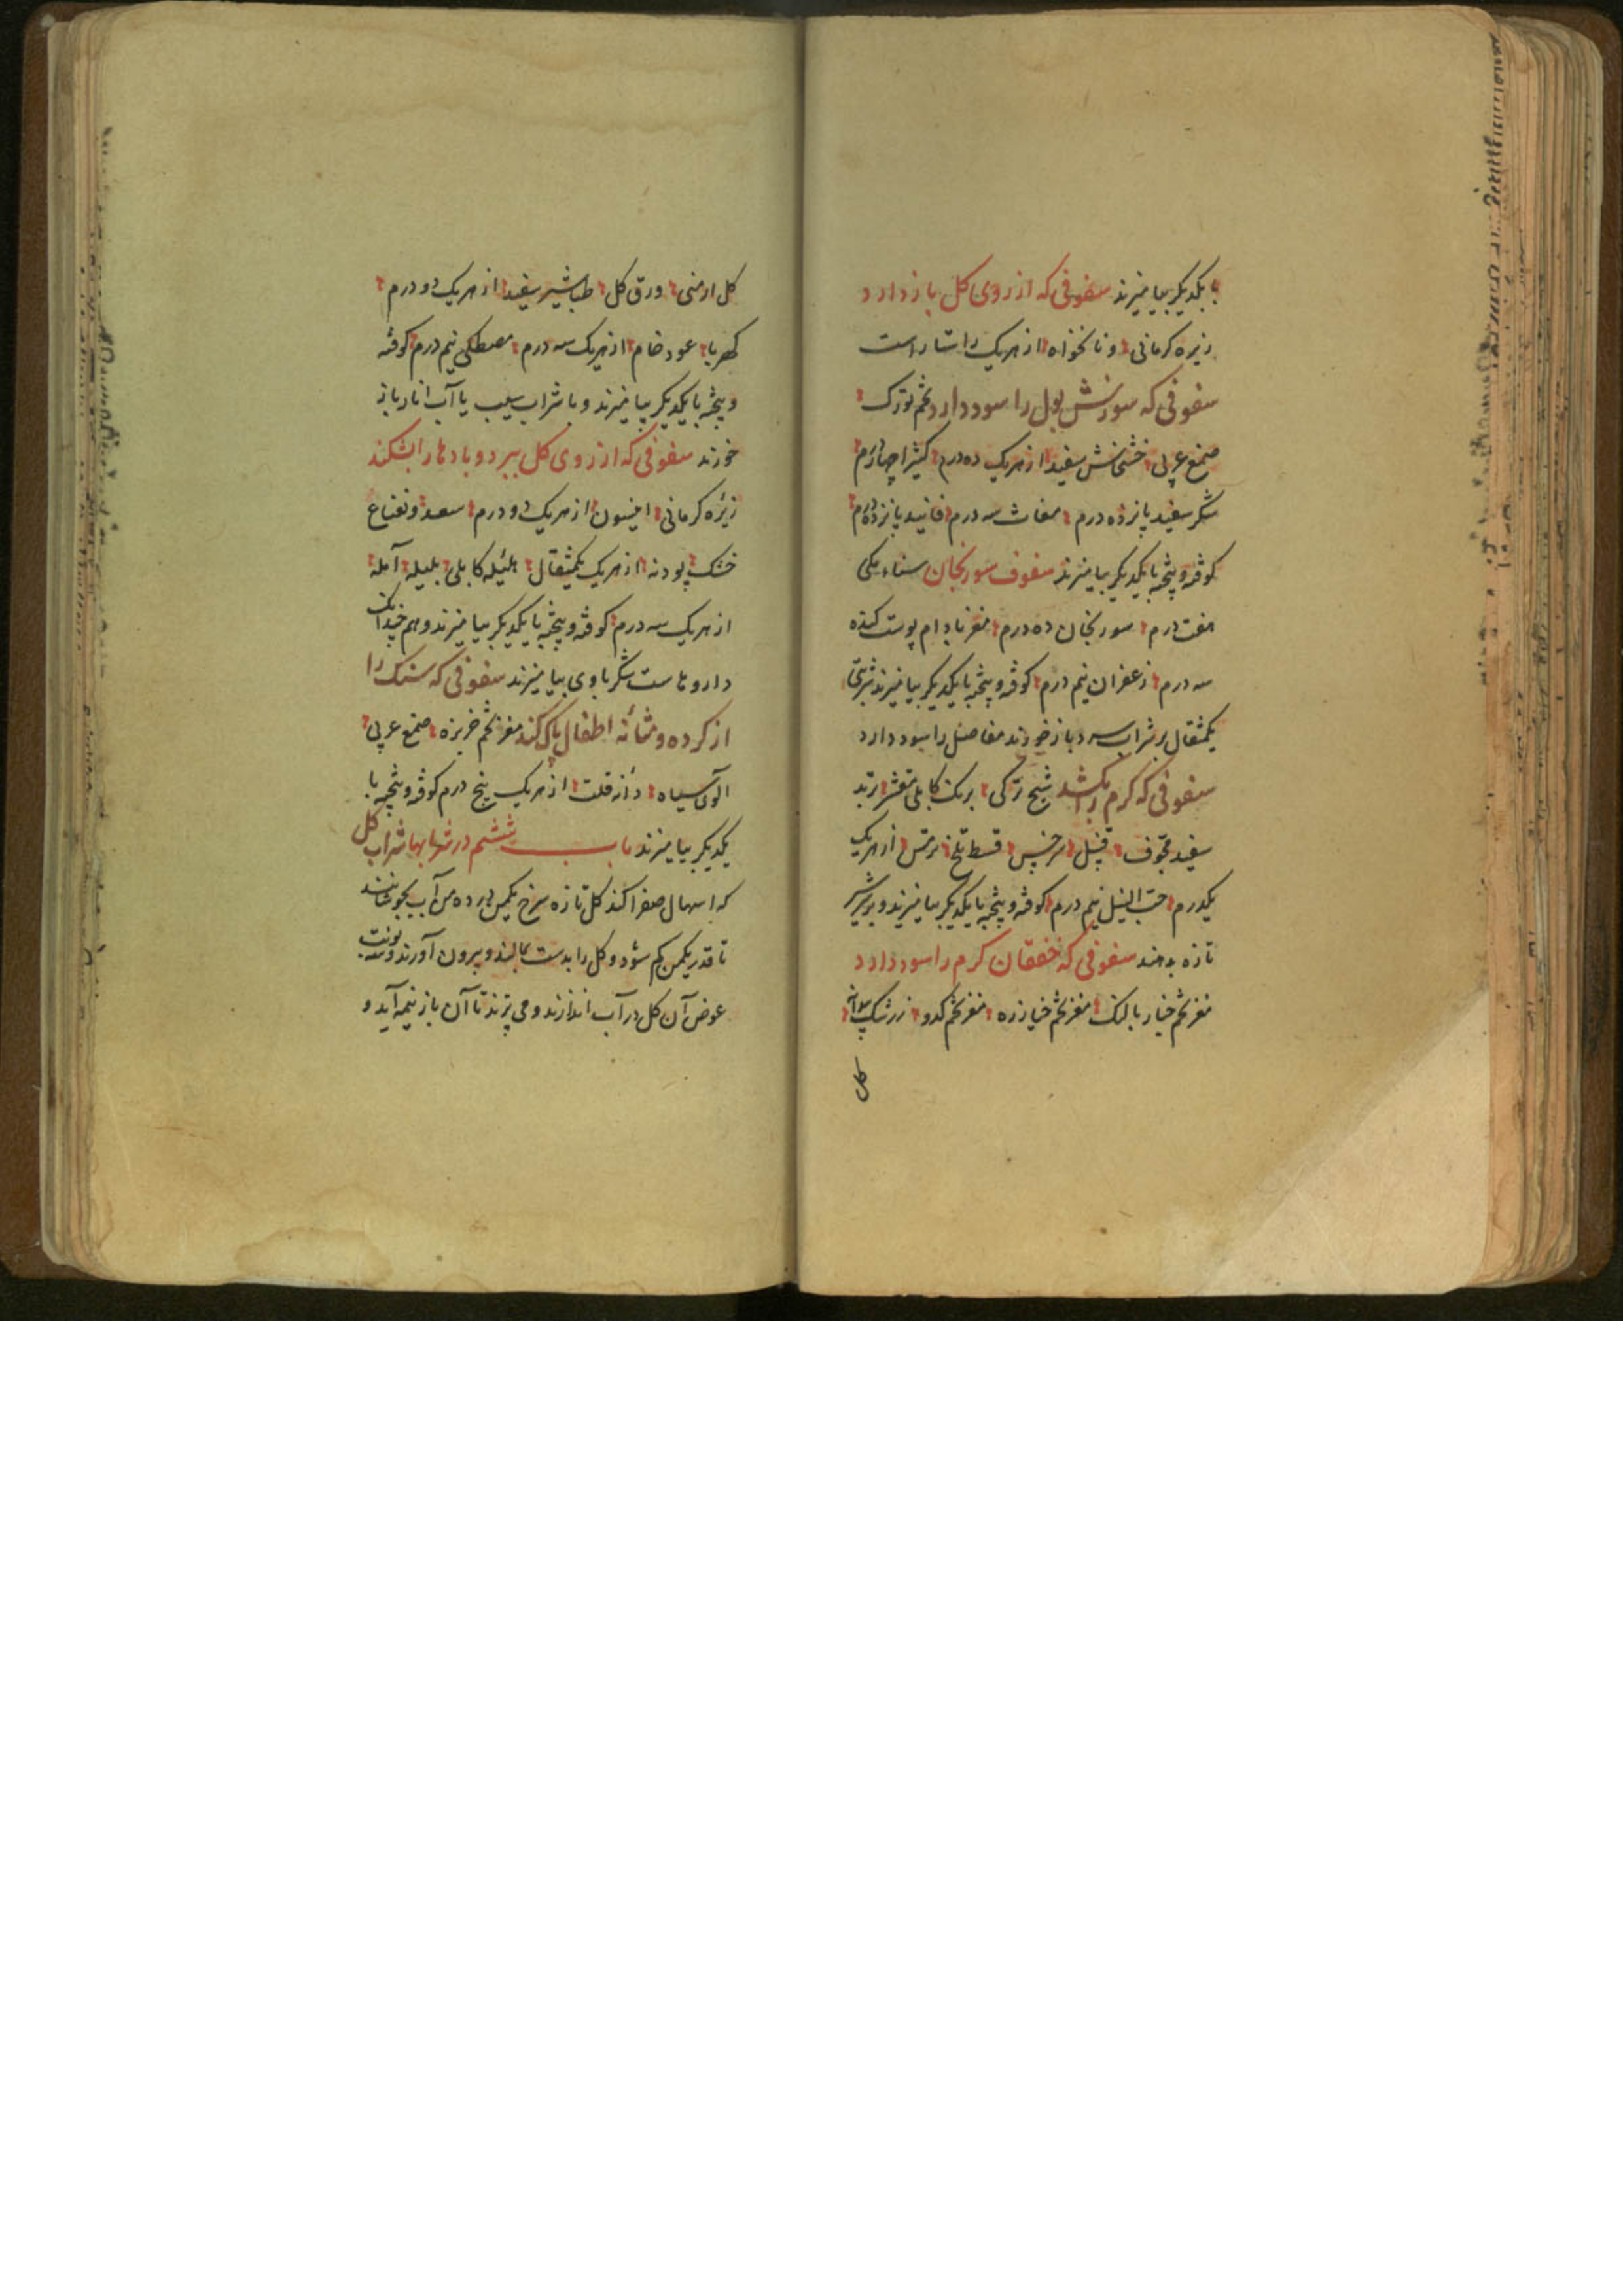 با یکدیگر بیامیزند سفوفی که ارزوی کل باز دارد
زیره کرمانی و نانخواه از هریک راستا راست
سفوفی که سوزش بول را سود دارد تخم تورک
صمغ عربی خشخاش سفید از هریک ده درم کثیرا چهاردرم
شکر سفید پانزده درم مغاث سه درم فانید پانزده درم
کوفته و پیخته با یکدیگر بیامیزند سفوف سورنجان سناء مکی
هفت درم سورنجان ده درم مغز بادام پوست کنده
سه درم زعفران نیم درم کوفته و پیخته با یکدیگر بیامیزند شربتی
یکمثقال بر شراب سرد باز خورند مفاصل را سود دارد
سفوفی که کرم را بکشد شیح ترکی برنک کابلی مقشر تربد
سفید مجوف قنبیل سرخس قسط تلخ ترمس از هریک
یکدرم حب النیل نیم درم کوفته و پیخته با یکدیگر بیامیزند و بر شیر
تازه بدهند سفوفی که خفقان کرم را سود دارد
مغز تخم خیار بالنک مغز تخم خیارزه مغز تخم کدو زرشک بیدانه
کل
کل ارمنی ورق کل طباشیر سفید از هریک دو درم
کهربا عود خام از هریک سه درم مصطکی نیم درم کوفته
و پیخته با یکدیگر بیامیزند و با شراب سیب یا آب انار باز
خورند سفوفی که ارزوی کل ببرد و بادها را بشکند
زیره کرمانی انیسون از هریک دو درم سعد و نعناع
خشک پودنه از هریک یکمثقال هلیله کابلی بلیله آمله
از هریک سه درم کوفته و پیخته با یکدیگر بیامیزند و هم چندانک
داروهاست شکر باوی بیامیزند سفوفی که سنک را
از کرده و مثانه اطفال پاک کند مغز تخم خربزه صمغ عربی
الوی سیاه دانه قلت از هریک پنج درم کوفته و پیخته با
یکدیگر بیامیزند باب ششم در شرابها شراب کل
که اسهال صفرا کند کل تازه سرخ یکمن در ده من آب بجوشانند
تا قدر یکمن کم شود و کل را بدست بمالند و بیرون آورند و سه نوبت
عوض آن کل در آب اندازند و می پزند تا آن باز نیمه آید و